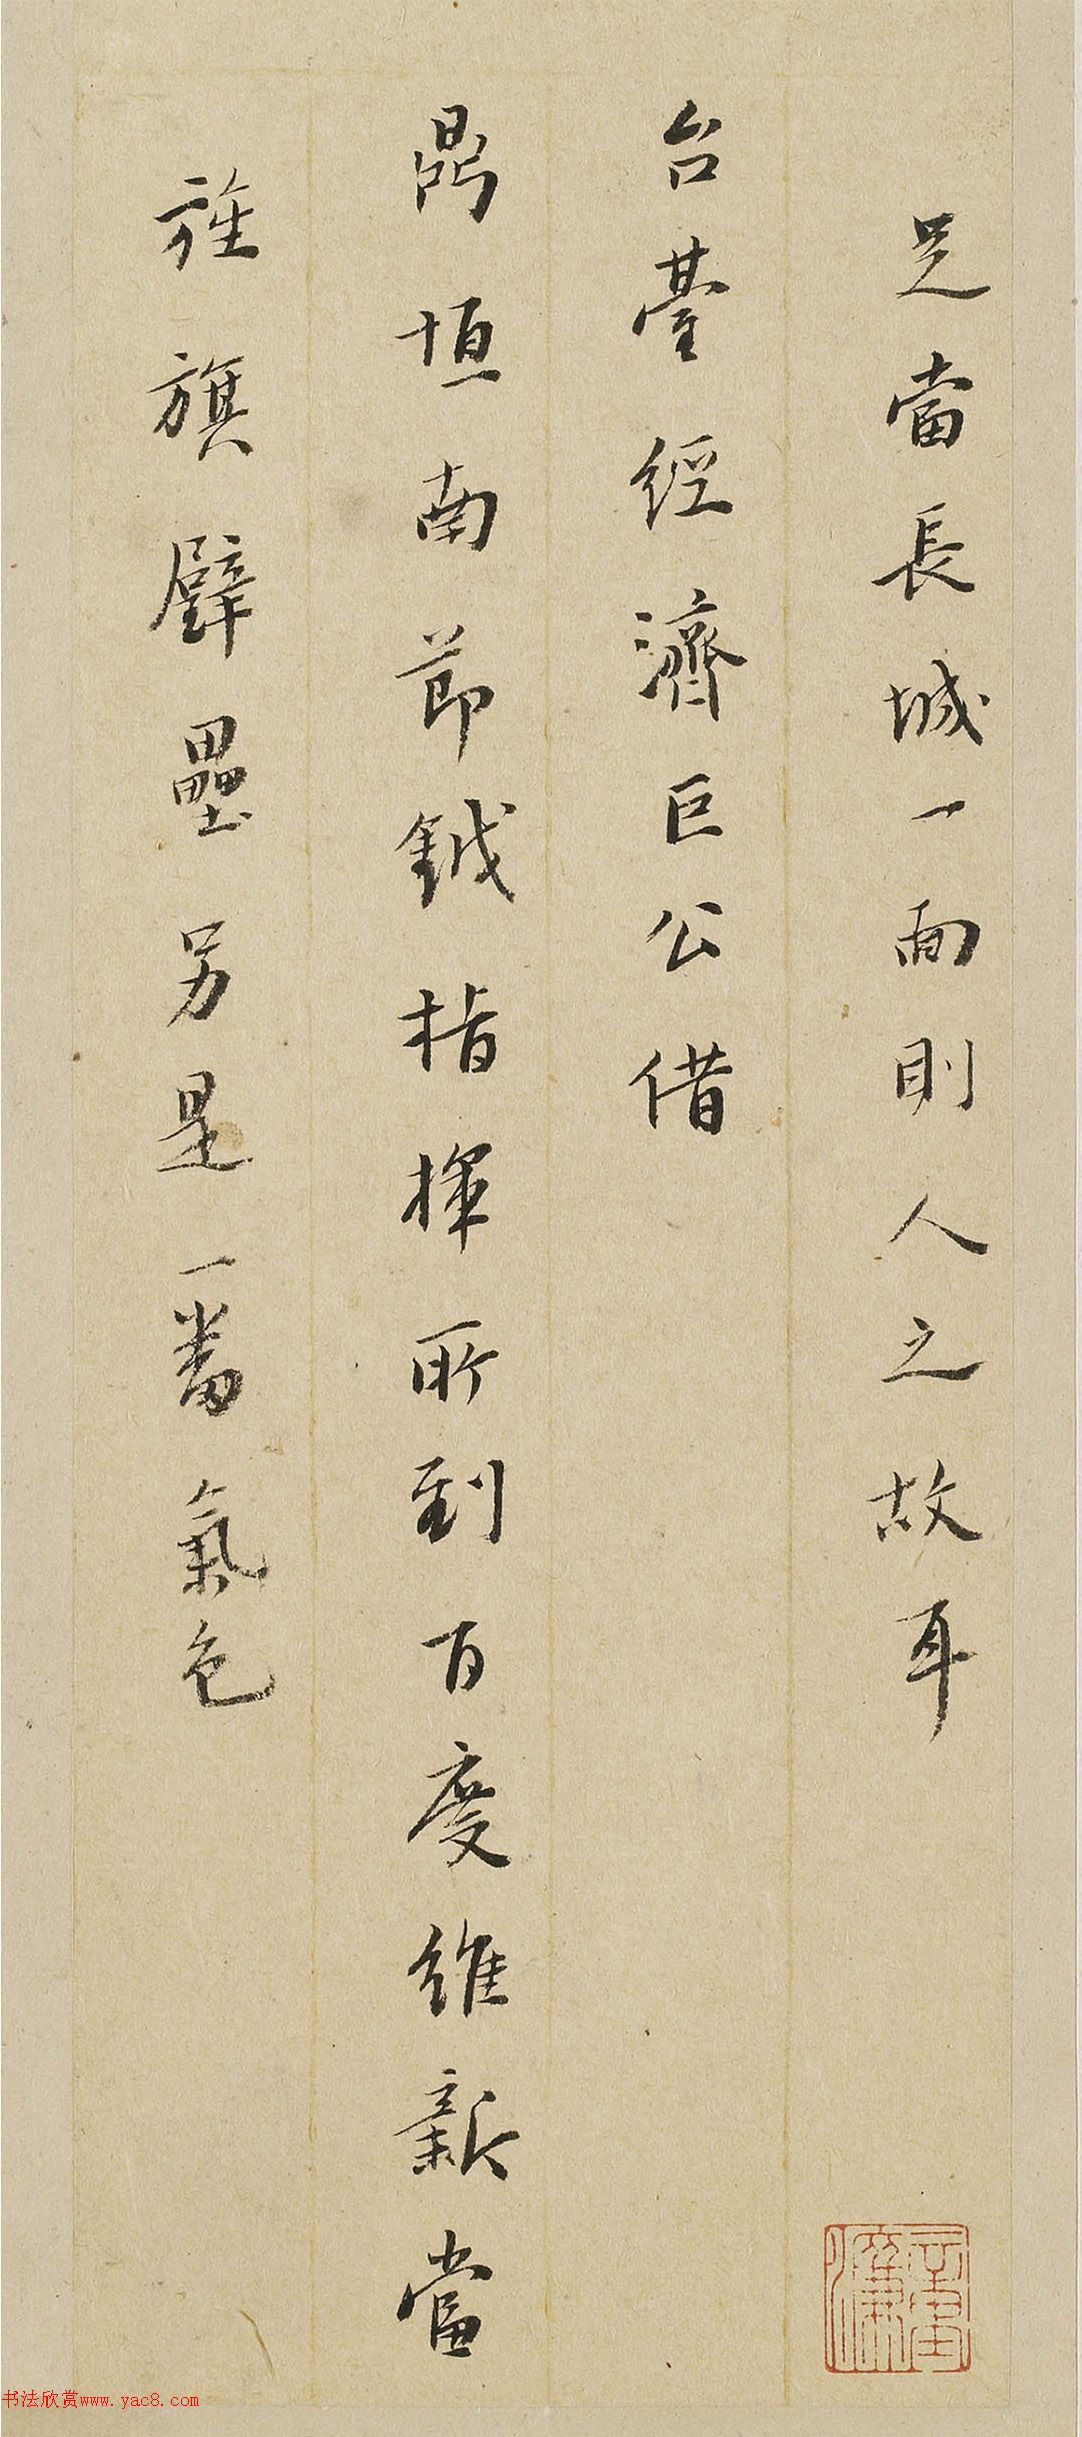 足當長城一面則人之故耳
台臺經濟巨公借
箸垣南節鉞指揮所到百度維新當
旌旗壁壘另是一番氣色
书法欣赏www.yac8.com